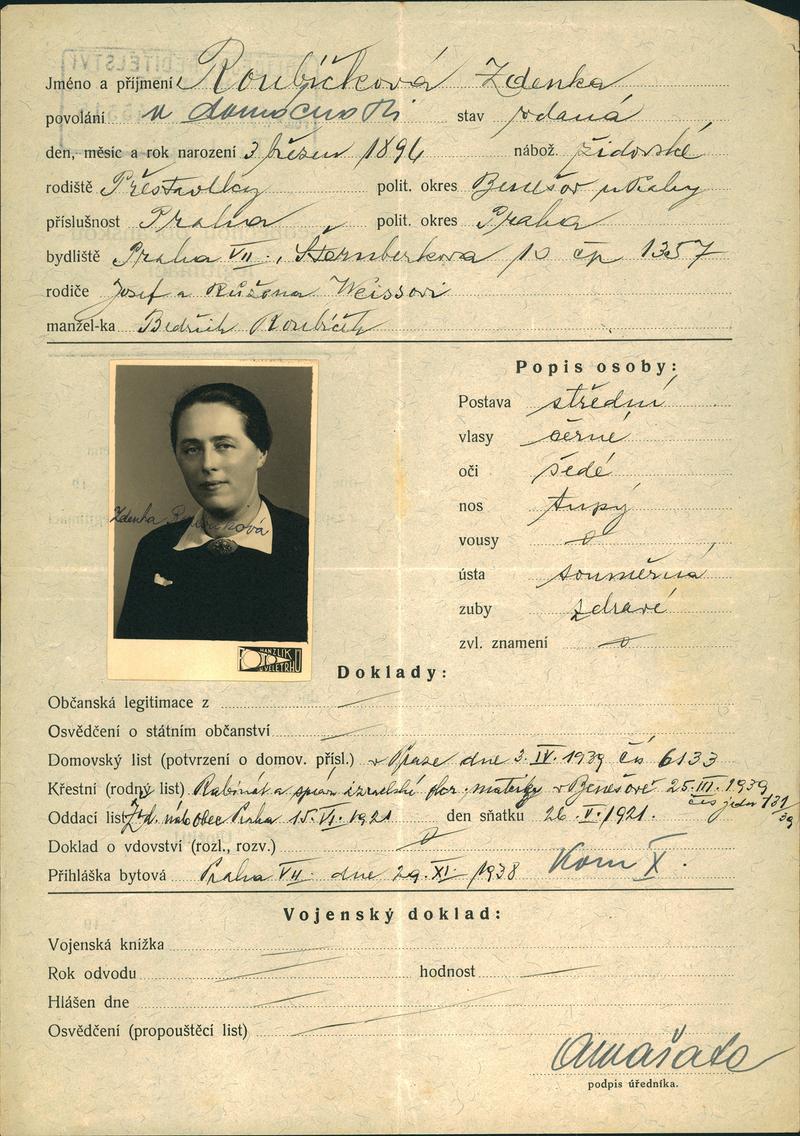 Jméno a příjmení Roubíčková Zdenka
povolání v domácnosti stav vdaná
den, měsíc a rok narození 3 březen 1896 nábož. židovské
rodiště Přestavlky polit. okres Benešov u Prahy
příslušnost Praha polit. okres Praha
bydliště Praha VII., Šternberkova 10 čp 1357
rodiče Josef a Růžena Weissovi
manžel-ka Bedřich Roubíček
Popis osoby:
Postava střední
vlasy černé
oči šedé
nos tupý
vousy
ústa souměrná
zuby zdravé
zvl. znamení
Zdenka Roubíčková
MANZLIK
U VELETRHU
Doklady:
Občanská legitimace z
Osvědčení o státním občanství
Domovský list (potvrzení o domov. přísl.) v Praze dne 3. IV. 1939 čís 6133
Křestní (rodný list) Rabinát a správ izraelské matriky v Benešově 25. III. 1939
Oddací list Žid. náb obec Praha 15. VI. 1921 den sňatku 26. V. 1921. čís jedn 131/39
Doklad o vdovství (rozl., rozv.)
Přihláška bytová Praha VII. dne 29. XI. 1938 Kom X.
Vojenský doklad:
Vojenská knížka
Rok odvodu hodnost
Hlášen dne
Osvědčení (propouštěcí list)
podpis úředníka.